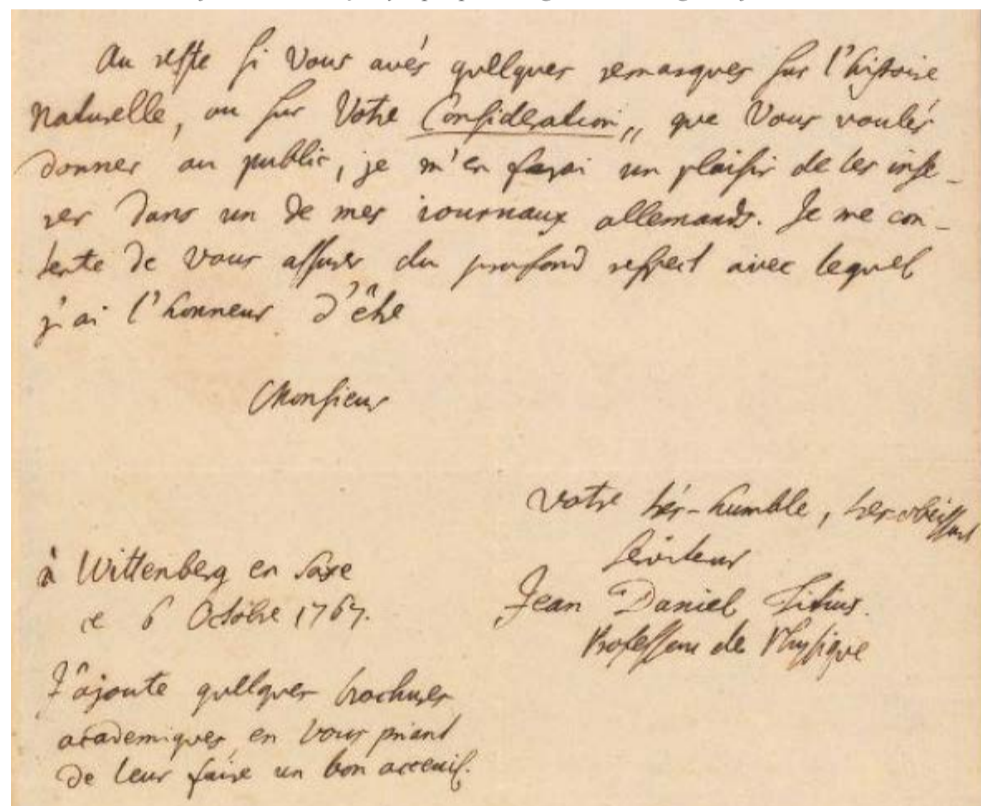 Au reste si Vous avés quelques remarques sur l'histoire
Naturelle, ou sur Votre Consideration,, que Vous voulés
donner au public, je m'en farai un plaisir de les inse-
rer dans un de mes iournaux allemands. Je me con-
tente de vous assurer du profond respect avec lequel
j'ai l'honneur d'être
Monsieur
Votre trés-humble, tres-obeissant
serviteur
Jean Daniel Titius.
Professeur de Physique
à Wittenberg en Saxe
ce 6 Octobre 1767.
J'ajoute quelques brochures
academiques, en Vous priant
de leur faire un bon acceuil.